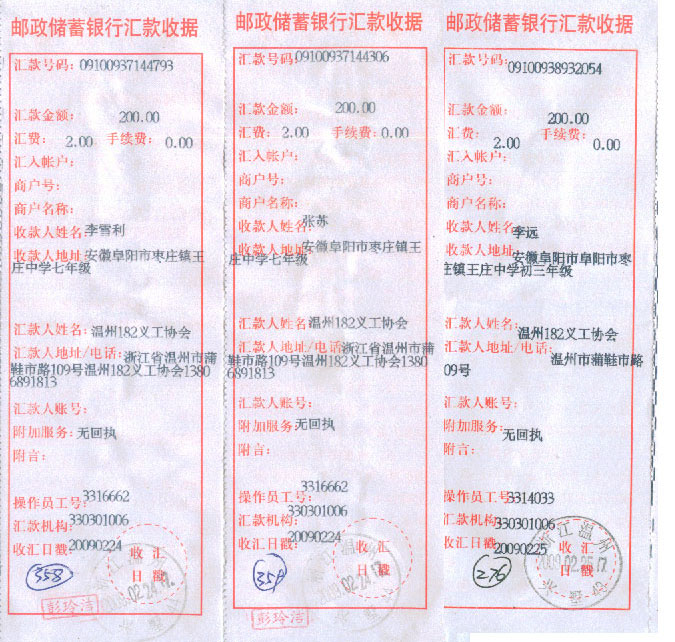 邮政储蓄银行汇款收据
汇款号码:09100937144793
汇款金额: 200.00
汇费: 2.00 手续费: 0.00
汇入帐户:
商户号:
商户名称:
收款人姓名 李雪利
收款人地址 安徽阜阳市枣庄镇王
庄中学七年级
汇款人姓名: 温州182义工协会
汇款人地址/电话: 浙江省温州市蒲
鞋市路109号温州182义工协会1380
6891813
汇款人账号:
附加服务: 无回执
附言:
操作员工号: 3316662
汇款机构: 330301006
收汇日戳: 20090224
收汇
日戳
358
彭玲洁
邮政储蓄银行汇款收据
汇款号码:09100937144306
汇款金额: 200.00
汇费: 2.00 手续费: 0.00
汇入帐户:
商户号:
商户名称:
收款人姓名: 张苏
收款人地址: 安徽阜阳市枣庄镇王
庄中学七年级
汇款人姓名 温州182义工协会
汇款人地址/电话: 浙江省温州市蒲
鞋市路109号温州182义工协会1380
6891813
汇款人账号:
附加服务: 无回执
附言:
操作员工号: 3316662
汇款机构: 330301006
收汇日戳: 20090224
收汇
日戳
359
彭玲洁
邮政储蓄银行汇款收据
汇款号码: 09100938932054
汇款金额: 200.00
汇费: 2.00 手续费: 0.00
汇入帐户:
商户号:
商户名称:
收款人姓名: 李远
收款人地址: 安徽阜阳市阜阳市枣
庄镇王庄中学初三年级
汇款人姓名: 温州182义工协会
汇款人地址/电话: 温州市蒲鞋市路
109号
汇款人账号:
附加服务: 无回执
附言:
操作员工号: 3314033
汇款机构: 330301006
收汇日戳: 20090225
收汇
日戳
浙江温州
2009.02.25.17
276